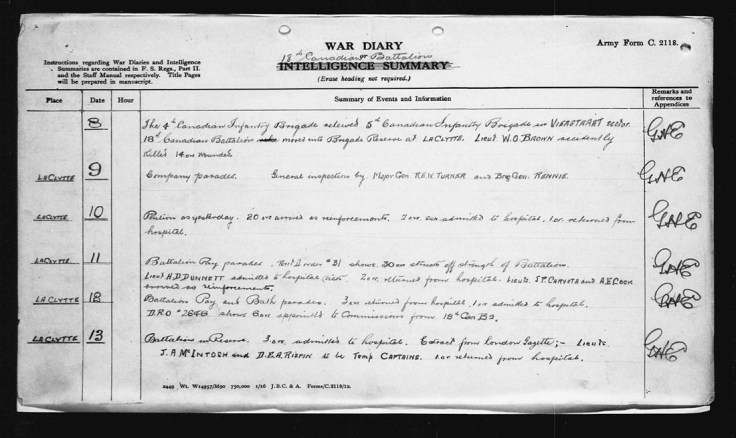 WAR DIARY
Army Form C. 2118.
18th Canadian Battalion
or
INTELLIGENCE SUMMARY
(Erase heading not required.)
Instructions regarding War Diaries and Intelligence
Summaries are contained in F. S. Regs., Part II.
and the Staff Manual respectively. Title Pages
will be prepared in manuscript.
Place Date Hour Summary of Events and Information Remarks and references to Appendices
8 The 4th Canadian Infantry Brigade relieved 5th Canadian Infantry Brigade in VIERSTRAAT sector.
18th Canadian Battalion moved into Brigade Reserve at LACLYTTE. Lieut W.O. BROWN accidently
killed 1 o.r. wounded.
LACLYTTE 9 Company parades. General inspection by Major Gen R.E.W. TURNER and Brig Gen. RENNIE.
LACLYTTE 10 Position as yesterday. 20 o.r. arrived as reinforcements. 2 o.r. admitted to hospital. 1 o.r. returned from
hospital.
LACLYTTE 11 Battalion Pay parades. #31 shows 30 o.r. struck off strength of Battalion.
Lieut H.D. DUNNETT admitted to hospital. 2 o.r. returned from hospital. Lieuts. and A.E. COOK
arrived as reinforcements.
LACLYTTE 12 Battalion Pay and Bath parades. 3 o.r. returned from hospital. 1 o.r. admitted to hospital.
D.R.O #2646 shows 6 o.r. appointed to Commissions from 18th Can Bn.
LACLYTTE 13 Battalion in Reserve. 3 o.r. admitted to hospital. Extract from London Gazette;- Lieuts.
J.A. McINTOSH and D.E.A. RISPIN to be Temp CAPTAINS. 1 o.r. returned from hospital.
2449 Wt. W14957/M90 750,000 1/16 J.B.C. & A. Forms/C.2118/12.